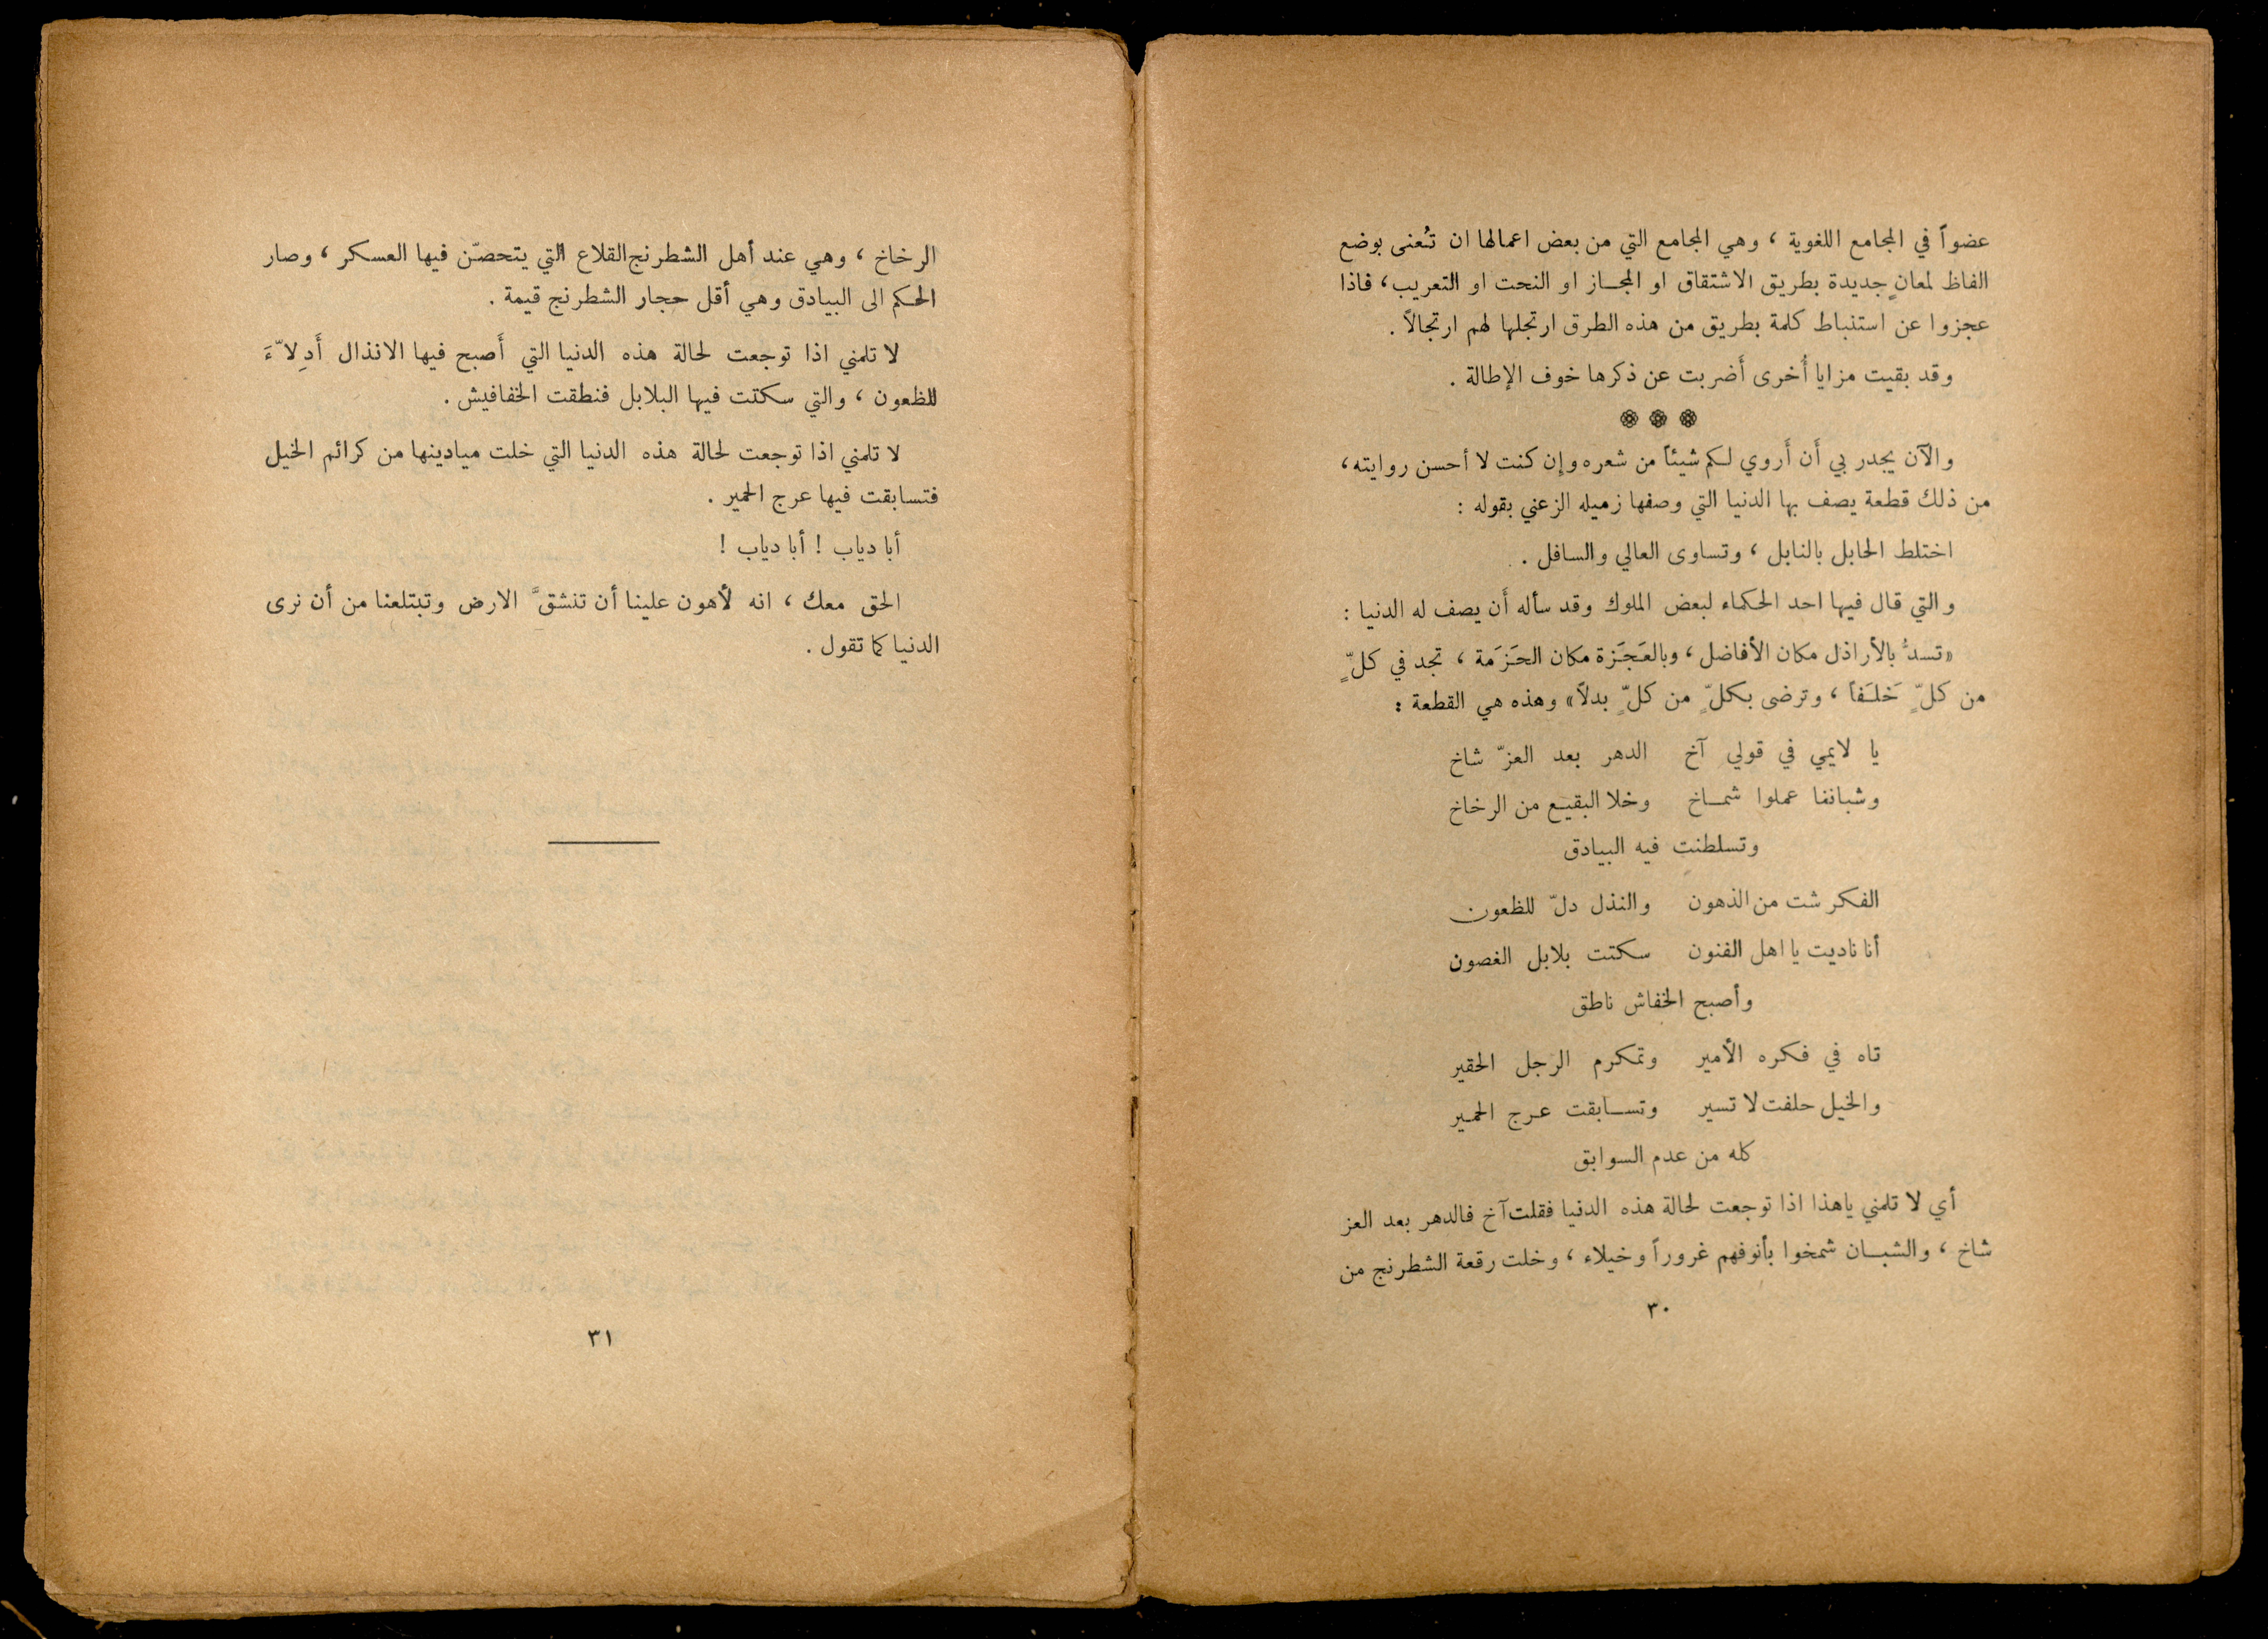 عضواً في المجامع اللغوية ، وهي المجامع التي من بعض اعمالها ان تُعنى بوضع
الفاظ لمعانٍ جديدة بطريق الاشتقاق او المجــاز او النحت او التعريب ، فاذا
عجزوا عن استنباط كلمة بطريق من هذه الطرق ارتجلها لهم ارتجالاً .
وقد بقيت مزايا أُخرى أَضربت عن ذكرها خوف الإطالة .
والآن يجدر بي أَن أَروي لكم شيئاً من شعره وإِن كنت لا أحسن روايته ،
من ذلك قطعة يصف بها الدنيا التي وصفها زميله الزعني بقوله :
اختلط الحابل بالنابل ، وتساوى العالي والسافل .
والتي قال فيها احد الحكماء لبعض الملوك وقد سأله أَن يصف له الدنيا :
«تسدُّ بالأراذل مكان الأفاضل ، وبالعَجَزة مكان الحَزَمة ، تجد في كلٍّ
من كلٍّ خَلَفاً ، وترضى بكلٍّ من كلٍّ بدلاً» وهذه هي القطعة :
يا لايمي في قولي آخ الدهر بعد العزّ شاخ
وشباننا عملوا شمــاخ وخلا البقيـع من الرخاخ
وتسلطنت فيه البيادق
الفكر شت من الذهون والنذل دلّ للظعون
أنا ناديت يا اهل الفنون سكتت بلابل الغصون
وأصبح الخفاش ناطق
تاه في فكره الأمير وتمكرم الرجل الحقير
والخيل حلفت لا تسير وتســابقت عـرج الحمـير
كله من عدم السوابق
أي لا تلمني ياهذا اذا توجعت لحالة هذه الدنيا فقلت آخ فالدهر بعد العز
شاخ ، والشبــان شمخوا بأنوفهم غروراً وخيلاء ، وخلت رقعة الشطرنج من
٣٠
الرخاخ ، وهي عند أهل الشطرنج القلاع التي يتحصّن فيها العسكر ، وصار
الحكم الى البيادق وهي أقل حجار الشطرنج قيمة .
لا تلمني اذا توجعت لحالة هذه الدنيا التي أَصبح فيها الانذال أَدِلاّءَ
للظعون ، والتي سكتت فيها البلابل فنطقت الخفافيش .
لا تلمني اذا توجعت لحالة هذه الدنيا التي خلت ميادينها من كرائم الخيل
فتسابقت فيها عرج الحمير .
أبا دياب ! أبا دياب !
الحق معك ، انه لأهون علينا أن تنشقَّ الارض وتبتلعنا من أن نرى
الدنيا كما تقول .
٣١